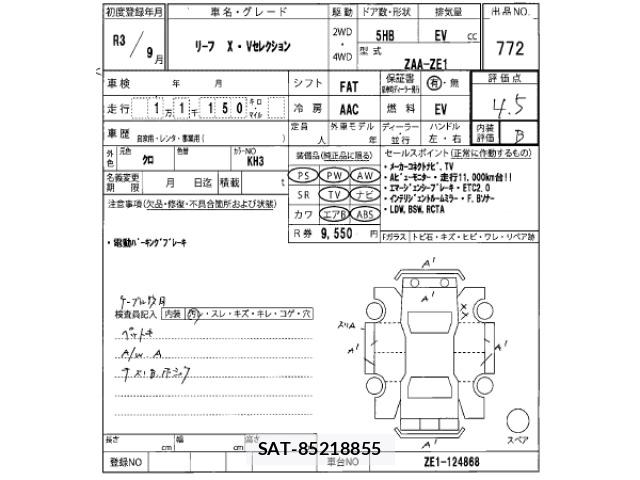 初度登録年月 車名・グレード 駆動 ドア数・形状 排気量 出品NO.
R3/9月 リーフ X・Vセレクション 2WD・4WD 5HB EV cc 772
型式 ZAA-ZE1
車検 年 月 シフト FAT 保証書 有・無 評価点
走行 1万1千150キロ マイル 冷房 AAC 燃料 EV 4.5
車歴 自家用・レンタ・事業用( ) 定員 人 外車モデル 年 ディーラー・並行 ハンドル 左・右 内装評価 B
外色 元色 クロ 色替 カラーNO KH3 装備品(純正品に限る) セールスポイント(正常に作動するもの)
名義変更期限 月 日迄 積載 t PS PW AW
SR TV ナビ
カワ エアB ABS
R券 9,550円
・メーカーコネクトナビ、TV
・Aビューモニター・走行11,000km台!!
・エマージェンシーブレーキ・ETC2.0
・インテリジェントルームミラー・F.Bソナー
・LDW,BSW,RCTA
Fガラス トビ石・キズ・ヒビ・ワレ・リペア跡
注意事項(欠品・修復・不具合箇所および状態)
・電動パーキングブレーキ
検査員記入 内装 汚レ・スレ・キズ・キレ・コゲ・穴
A/W A
A¹
A¹
A¹
A¹
スリA
スペア
長さ cm 幅 cm 高さ
SAT-85218855
登録NO 車台NO ZE1-124868